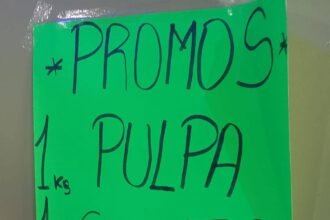 *PROMOS*
1 KG PULPA
1